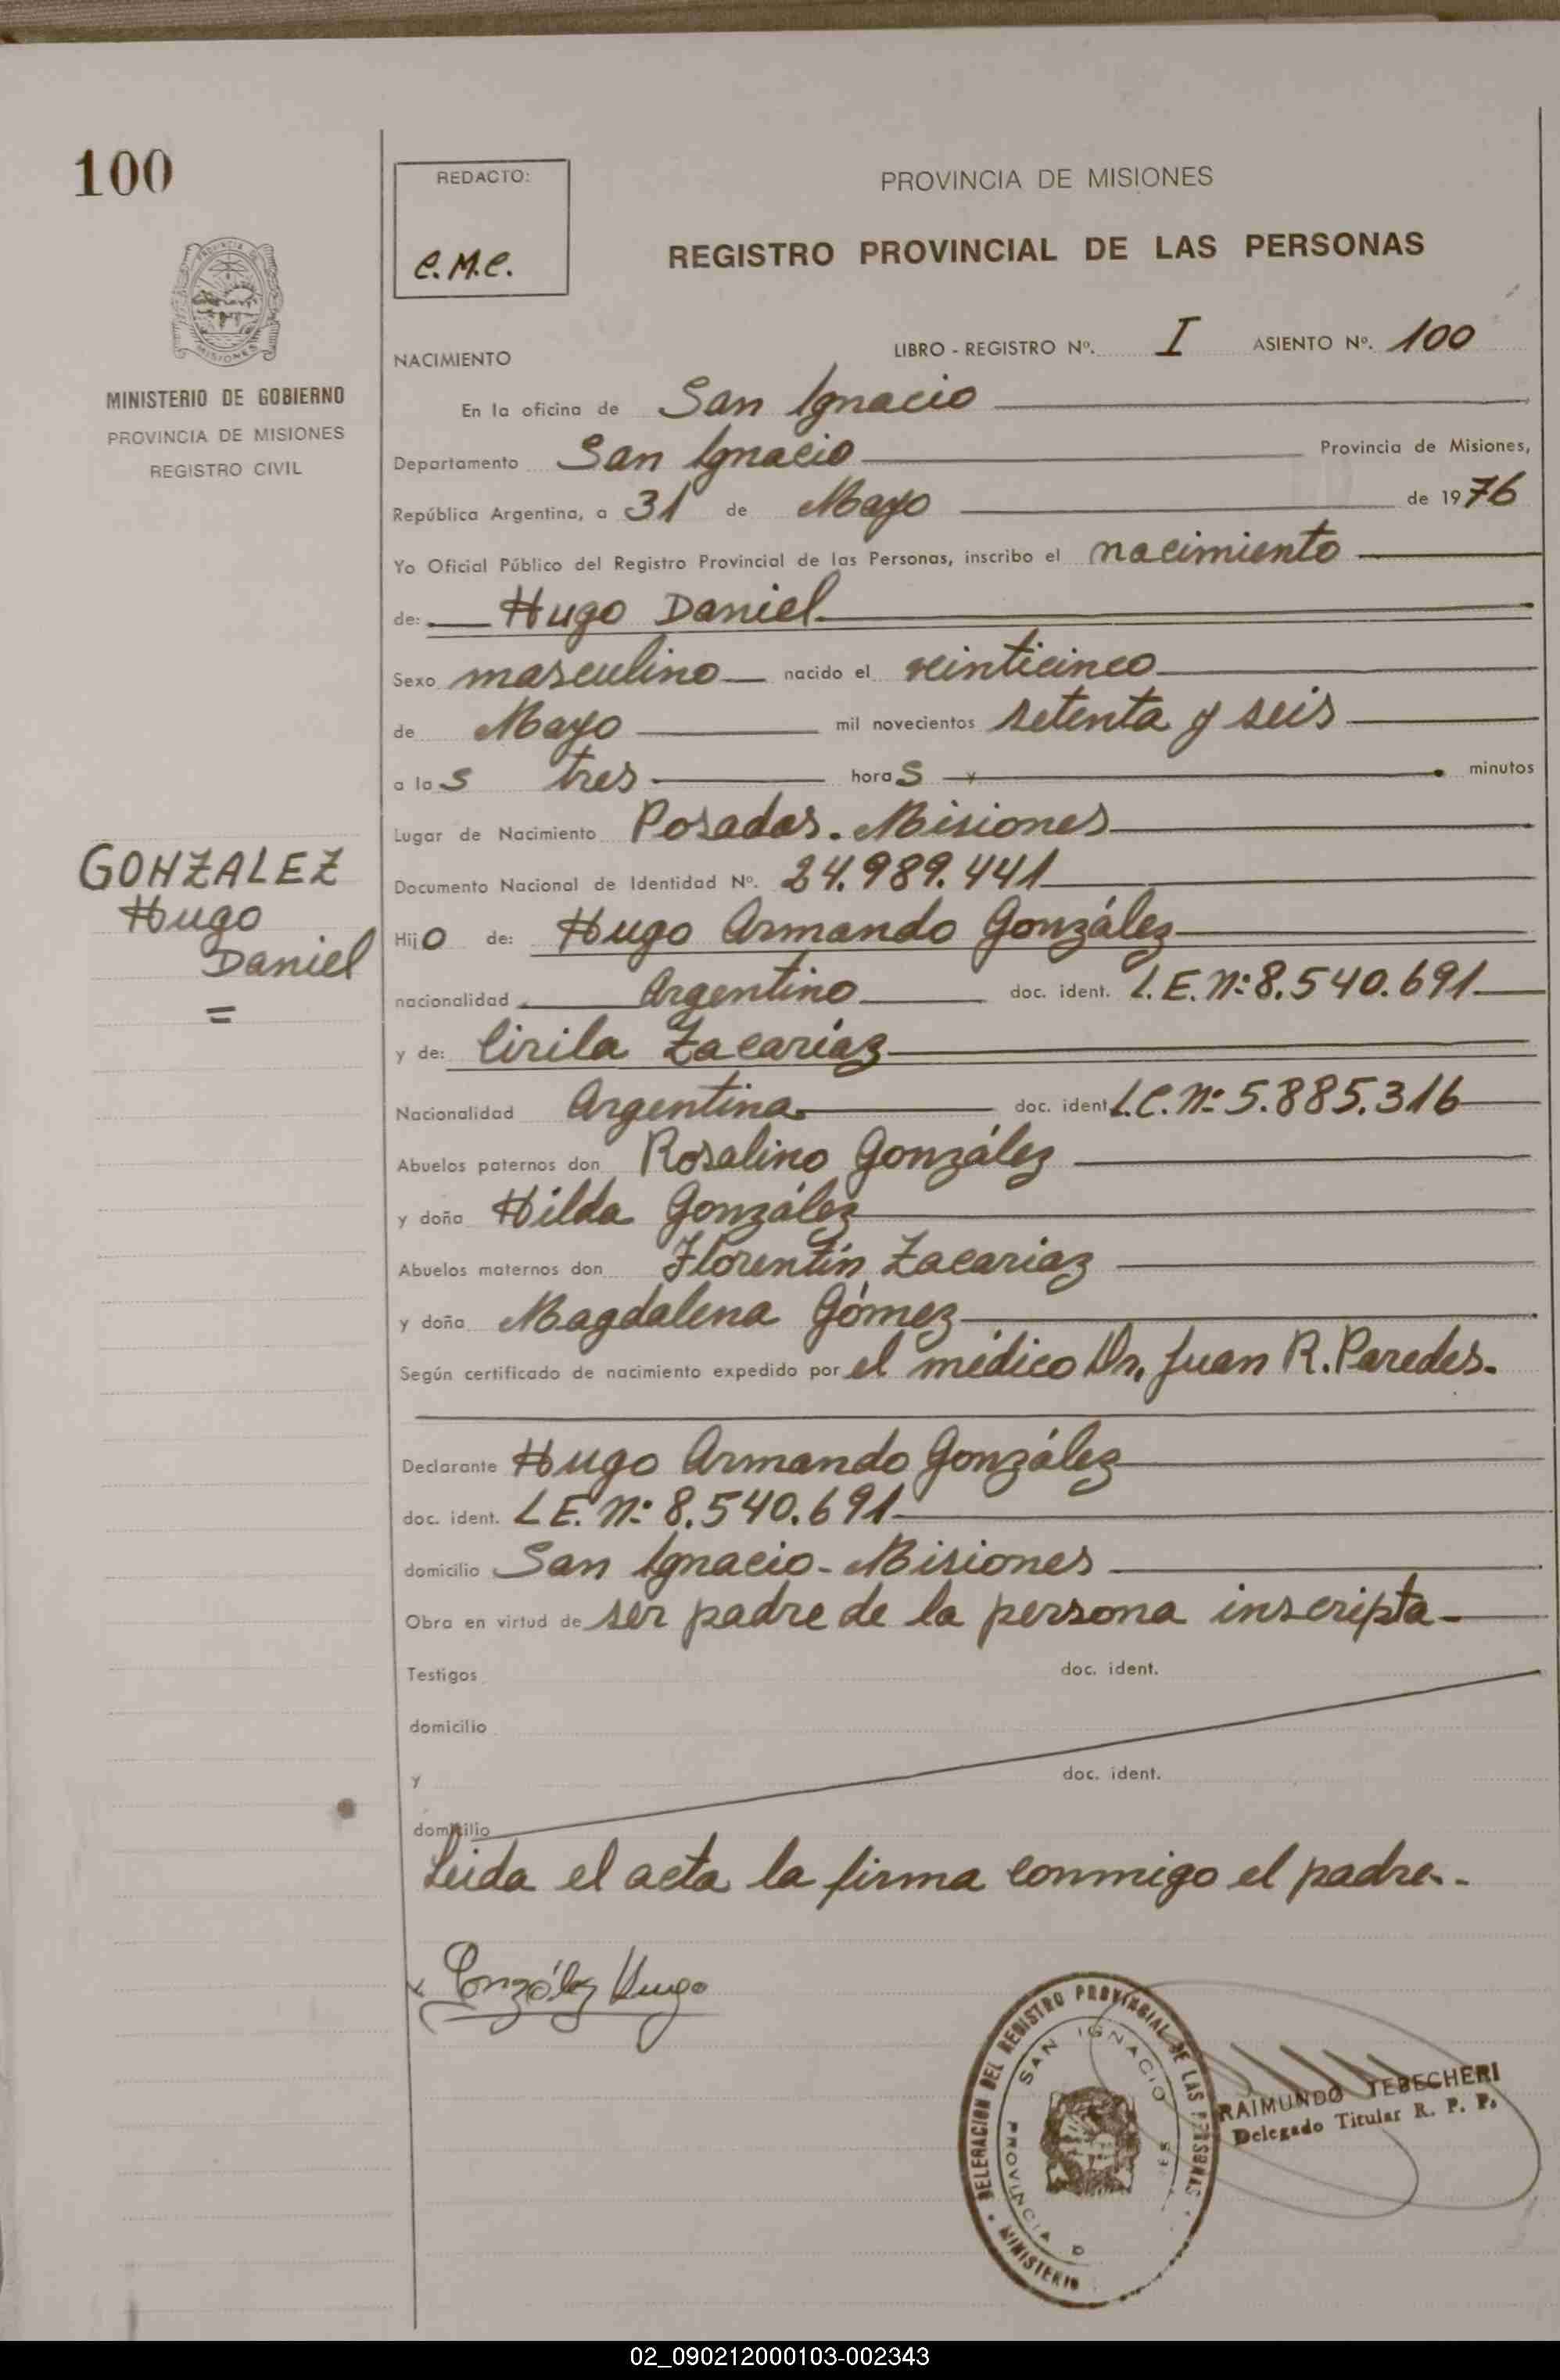 100
REDACTO:
C.M.C.
PROVINCIA DE MISIONES
REGISTRO PROVINCIAL DE LAS PERSONAS
PROVINCIA
MISIONES
MINISTERIO DE GOBIERNO
PROVINCIA DE MISIONES
REGISTRO CIVIL
NACIMIENTO LIBRO - REGISTRO Nº. I ASIENTO Nº. 100
En la oficina de San Ignacio
Departamento San Ignacio Provincia de Misiones,
República Argentina, a 31 de Mayo de 1976
Yo Oficial Público del Registro Provincial de las Personas, inscribo el nacimiento
de: Hugo Daniel
Sexo masculino nacido el veinticinco
de Mayo mil novecientos setenta y seis
a las tres horas y minutos
Lugar de Nacimiento Posadas. Misiones
Documento Nacional de Identidad Nº. 24.989.441
GONZALEZ
Hugo
Daniel
=
Hijo de: Hugo Armando González
nacionalidad Argentino doc. ident. L.E. Nº 8.540.691
y de: Cirila Zacaríaz
Nacionalidad Argentina doc. ident L.C. Nº 5.885.316
Abuelos paternos don Rosalino González
y doña Hilda González
Abuelos maternos don Florentín Zacariaz
y doña Magdalena Gómez
Según certificado de nacimiento expedido por el médico Dr. Juan R. Paredes.
Declarante Hugo Armando González
doc. ident. L E. Nº 8.540.691
domicilio San Ignacio - Misiones
Obra en virtud de ser padre de la persona inscripta
Testigos doc. ident.
domicilio
y doc. ident.
domicilio
Leida el acta la firma conmigo el padre.-
x González Hugo
DELEGACION DEL REGISTRO PROVINCIAL DE LAS PERSONAS
SAN IGNACIO
PROVINCIA D
MINISTERIO
RAIMUNDO TEBECHERI
Delegado Titular R. P. P.
02_090212000103-002343